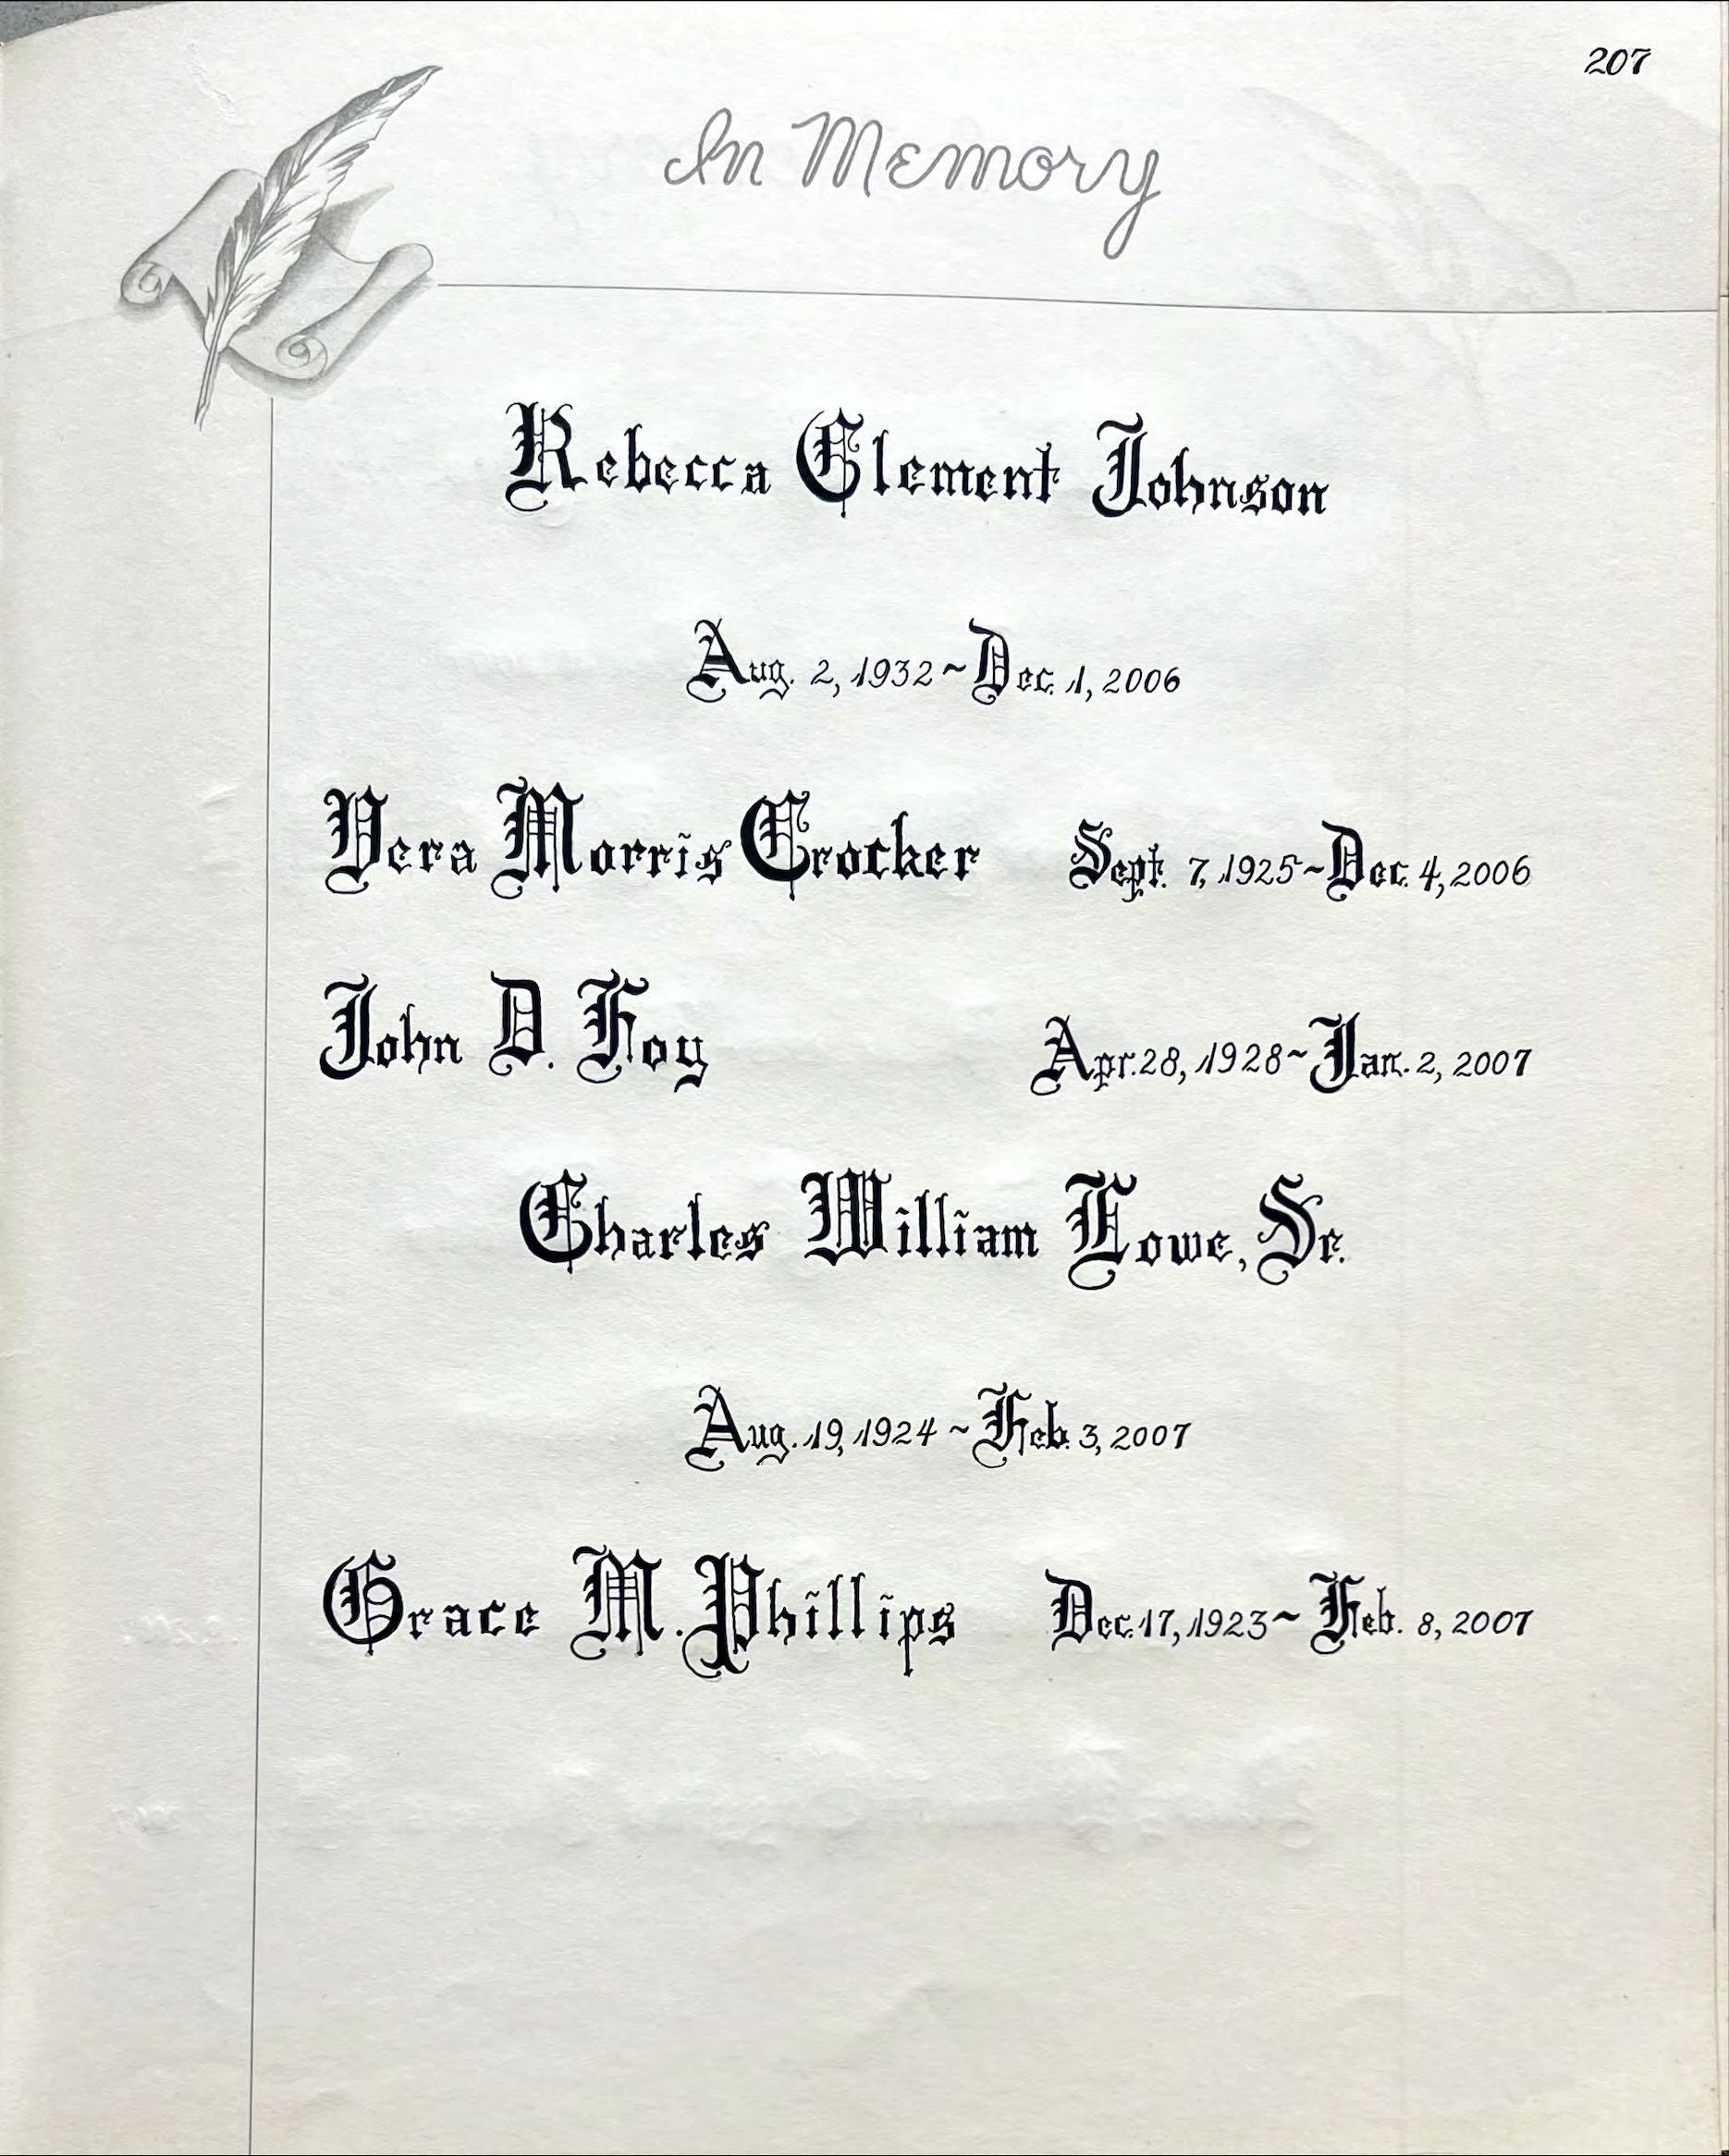 207
In Memory
Rebecca Clement Johnson
Aug. 2, 1932 ~ Dec. 1, 2006
Vera Morris Crocker Sept. 7, 1925 ~ Dec. 4, 2006
John D. Foy Apr. 28, 1928 ~ Jan. 2, 2007
Charles William Lowe, Sr.
Aug. 19, 1924 ~ Feb. 3, 2007
Grace M. Phillips Dec. 17, 1923 ~ Feb. 8, 2007